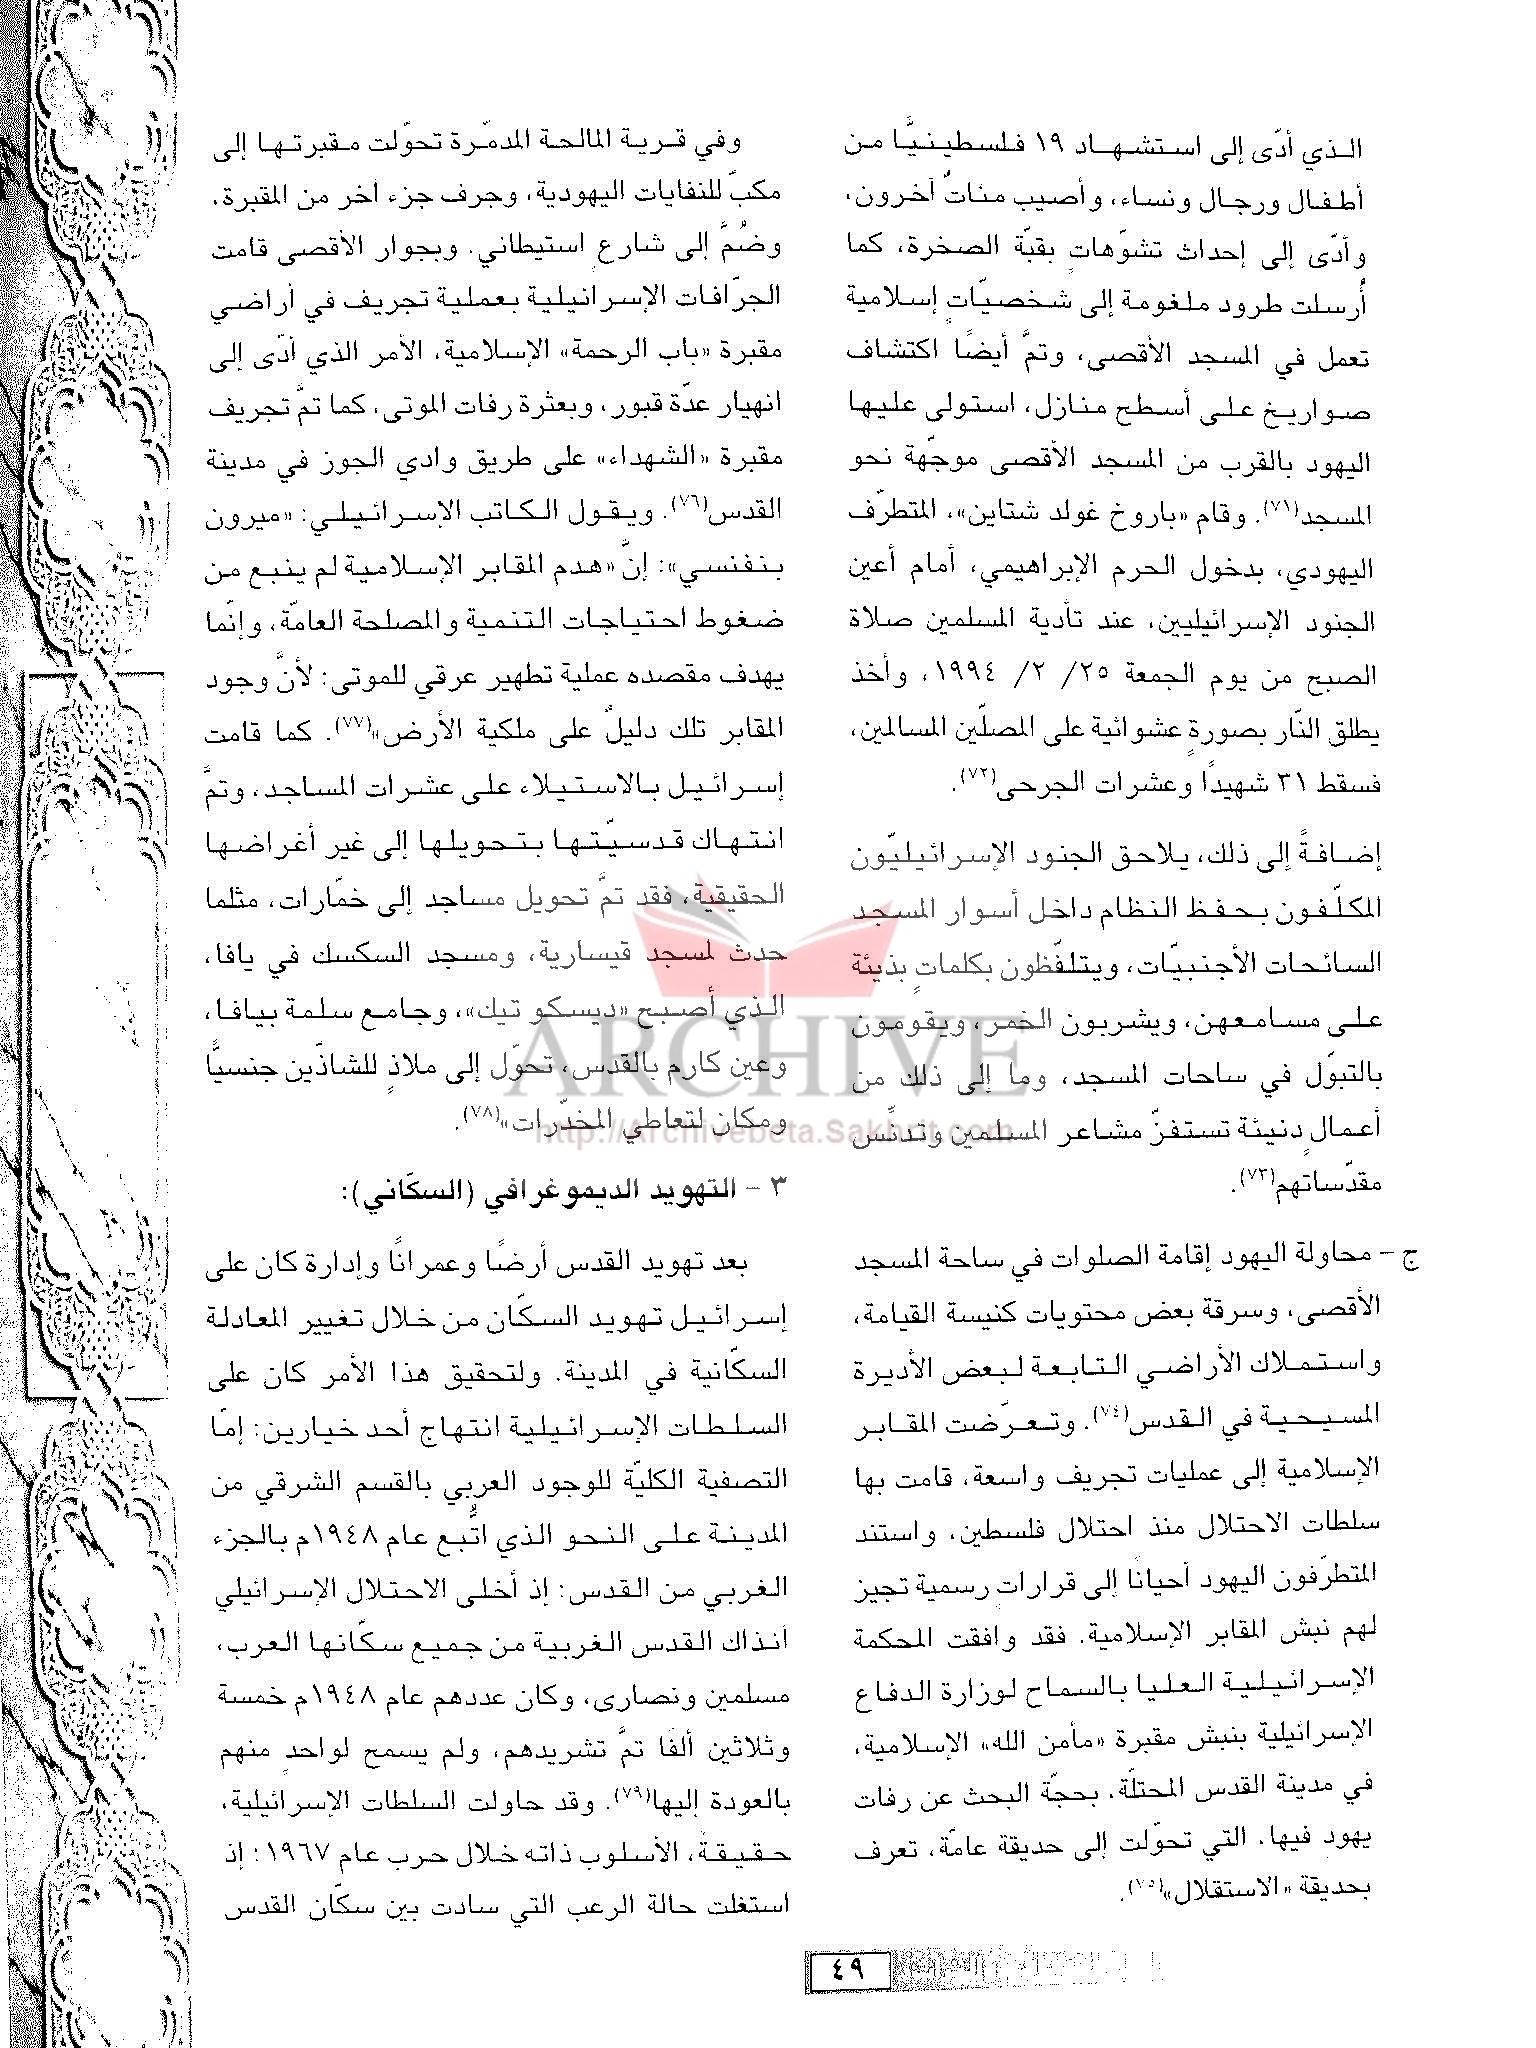 الـذي أدّى إلى استشهـاد ١٩ فلسطينيًّا من
أطفـال ورجـال ونساء، وأصيب مئاتٌ آخرون،
وأدّى إلى إحداث تشوّهاتٍ بقبّة الصخرة، كما
أُرسلت طرود ملغومة إلى شخصيّاتٍ إسلامية
تعمل في المسجد الأقصى، وتمَّ أيضًا اكتشاف
صواريخ على أسطح منازل، استولى عليها
اليهود بالقرب من المسجد الأقصى موجّهة نحو
المسجد(٧١). وقام «باروخ غولد شتاين»، المتطرّف
اليهودي، بدخول الحرم الإبراهيمي، أمام أعين
الجنود الإسرائيليين، عند تأدية المسلمين صلاة
الصبح من يوم الجمعة ٢٥/ ٢/ ١٩٩٤، وأخذ
يطلق النّار بصورةٍ عشوائية على المصلّين المسالمين،
فسقط ٣١ شهيدًا وعشرات الجرحى(٧٢).
إضافةً إلى ذلك، يلاحق الجنود الإسرائيليّون
المكلّفون بحفظ النظام داخل أسوار المسجد
السائحات الأجنبيّات، ويتلفّظون بكلماتٍ بذيئة
على مسامعهن، ويشربون الخمر، ويقومون
بالتبوّل في ساحات المسجد، وما إلى ذلك من
أعمالٍ دنيئة تستفزّ مشاعر المسلمين وتدنّس
مقدّساتهم(٧٣).
ج - محاولة اليهود إقامة الصلوات في ساحة المسجد
الأقصى، وسرقة بعض محتويات كنيسة القيامة،
واستملاك الأراضي التابعة لبعض الأديرة
المسيحية في القدس(٧٤). وتعرّضت المقابر
الإسلامية إلى عمليات تجريف واسعة، قامت بها
سلطات الاحتلال منذ احتلال فلسطين، واستند
المتطرّفون اليهود أحيانًا إلى قرارات رسمية تجيز
لهم نبش المقابر الإسلامية. فقد وافقت المحكمة
الإسرائيلية العليا بالسماح لوزارة الدفاع
الإسرائيلية بنبش مقبرة «مأمن الله» الإسلامية،
في مدينة القدس المحتلّة، بحجّة البحث عن رفات
يهود فيها، التي تحوّلت إلى حديقة عامّة، تعرف
بحديقة «الاستقلال»(٧٥).
وفي قرية المالحة المدمّرة تحوّلت مقبرتها إلى
مكبّ للنفايات اليهودية، وجرف جزء آخر من المقبرة،
وضُمَّ إلى شارع استيطاني. وبجوار الأقصى قامت
الجرّافات الإسرائيلية بعملية تجريف في أراضي
مقبرة «باب الرحمة» الإسلامية، الأمر الذي أدّى إلى
انهيار عدّة قبور، وبعثرة رفات الموتى، كما تمَّ تجريف
مقبرة «الشهداء» على طريق وادي الجوز في مدينة
القدس(٧٦). ويقول الكاتب الإسرائيلي: «ميرون
بنفنسي»: إنَّ «هدم المقابر الإسلامية لم ينبع من
ضغوط احتياجات التنمية والمصلحة العامّة، وإنّما
يهدف مقصده عملية تطهير عرقي للموتى: لأنَّ وجود
المقابر تلك دليلٌ على ملكية الأرض»(٧٧). كما قامت
إسرائيل بالاستيلاء على عشرات المساجد، وتمَّ
انتهاك قدسيّتها بتحويلها إلى غير أغراضها
الحقيقية، فقد تمَّ تحويل مساجد إلى خمّارات، مثلما
حدث لمسجد قيسارية، ومسجد السكسك في يافا،
الذي أصبح «ديسكو تيك»، وجامع سلمة بيافا،
وعين كارم بالقدس، تحوّل إلى ملاذٍ للشاذّين جنسيًّا
ومكان لتعاطي المخدّرات»(٧٨).
٣ - التهويد الديموغرافي (السكّاني):
بعد تهويد القدس أرضًا وعمرانًا وإدارة كان على
إسرائيل تهويد السكّان من خلال تغيير المعادلة
السكّانية في المدينة. ولتحقيق هذا الأمر كان على
السلطات الإسرائيلية انتهاج أحد خيارين: إمّا
التصفية الكليّة للوجود العربي بالقسم الشرقي من
المدينة على النحو الذي اتُّبع عام ١٩٤٨م بالجزء
الغربي من القدس: إذ أخلى الاحتلال الإسرائيلي
آنذاك القدس الغربية من جميع سكّانها العرب،
مسلمين ونصارى، وكان عددهم عام ١٩٤٨م خمسة
وثلاثين ألفًا تمَّ تشريدهم، ولم يسمح لواحدٍ منهم
بالعودة إليها(٧٩). وقد حاولت السلطات الإسرائيلية،
حقيقةً، الأسلوب ذاته خلال حرب عام ١٩٦٧: إذ
استغلت حالة الرعب التي سادت بين سكّان القدس
ARCHIVE
http://Archivebeta.Sakhrit.com
٤٩